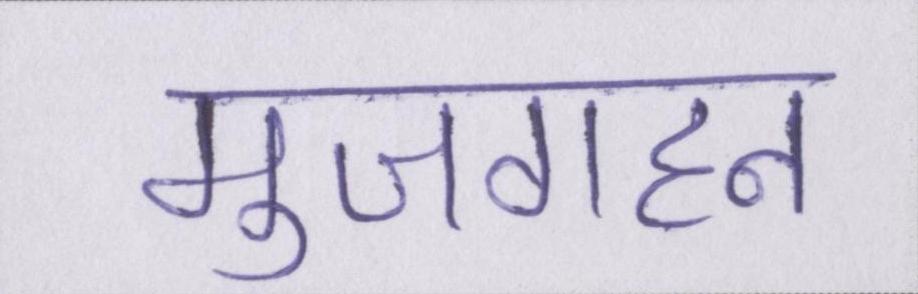 मुजगहन